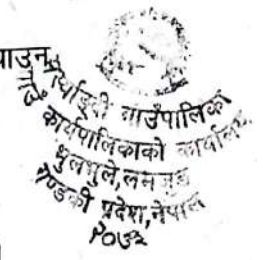 पाउन
मर्स्याङ्दी गाउँपालिका
गाउँ कार्यपालिकाको कार्यालय
भुलभुले, लमजुङ
गण्डकी प्रदेश, नेपाल
२०७३